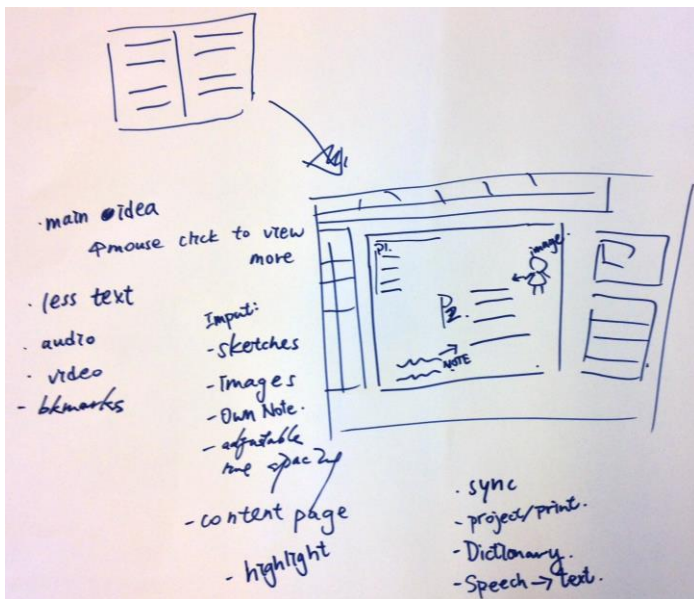 · main idea
mouse click to view
more
· less text
· audio
· video
- bkmarks
Input:
- sketches
- Images
- Own Note.
- adjustable
line spacing
- content page
- highlight
P1.
image.
P2.
NOTE
· sync
- project/print.
- Dictionary.
- Speech → text.